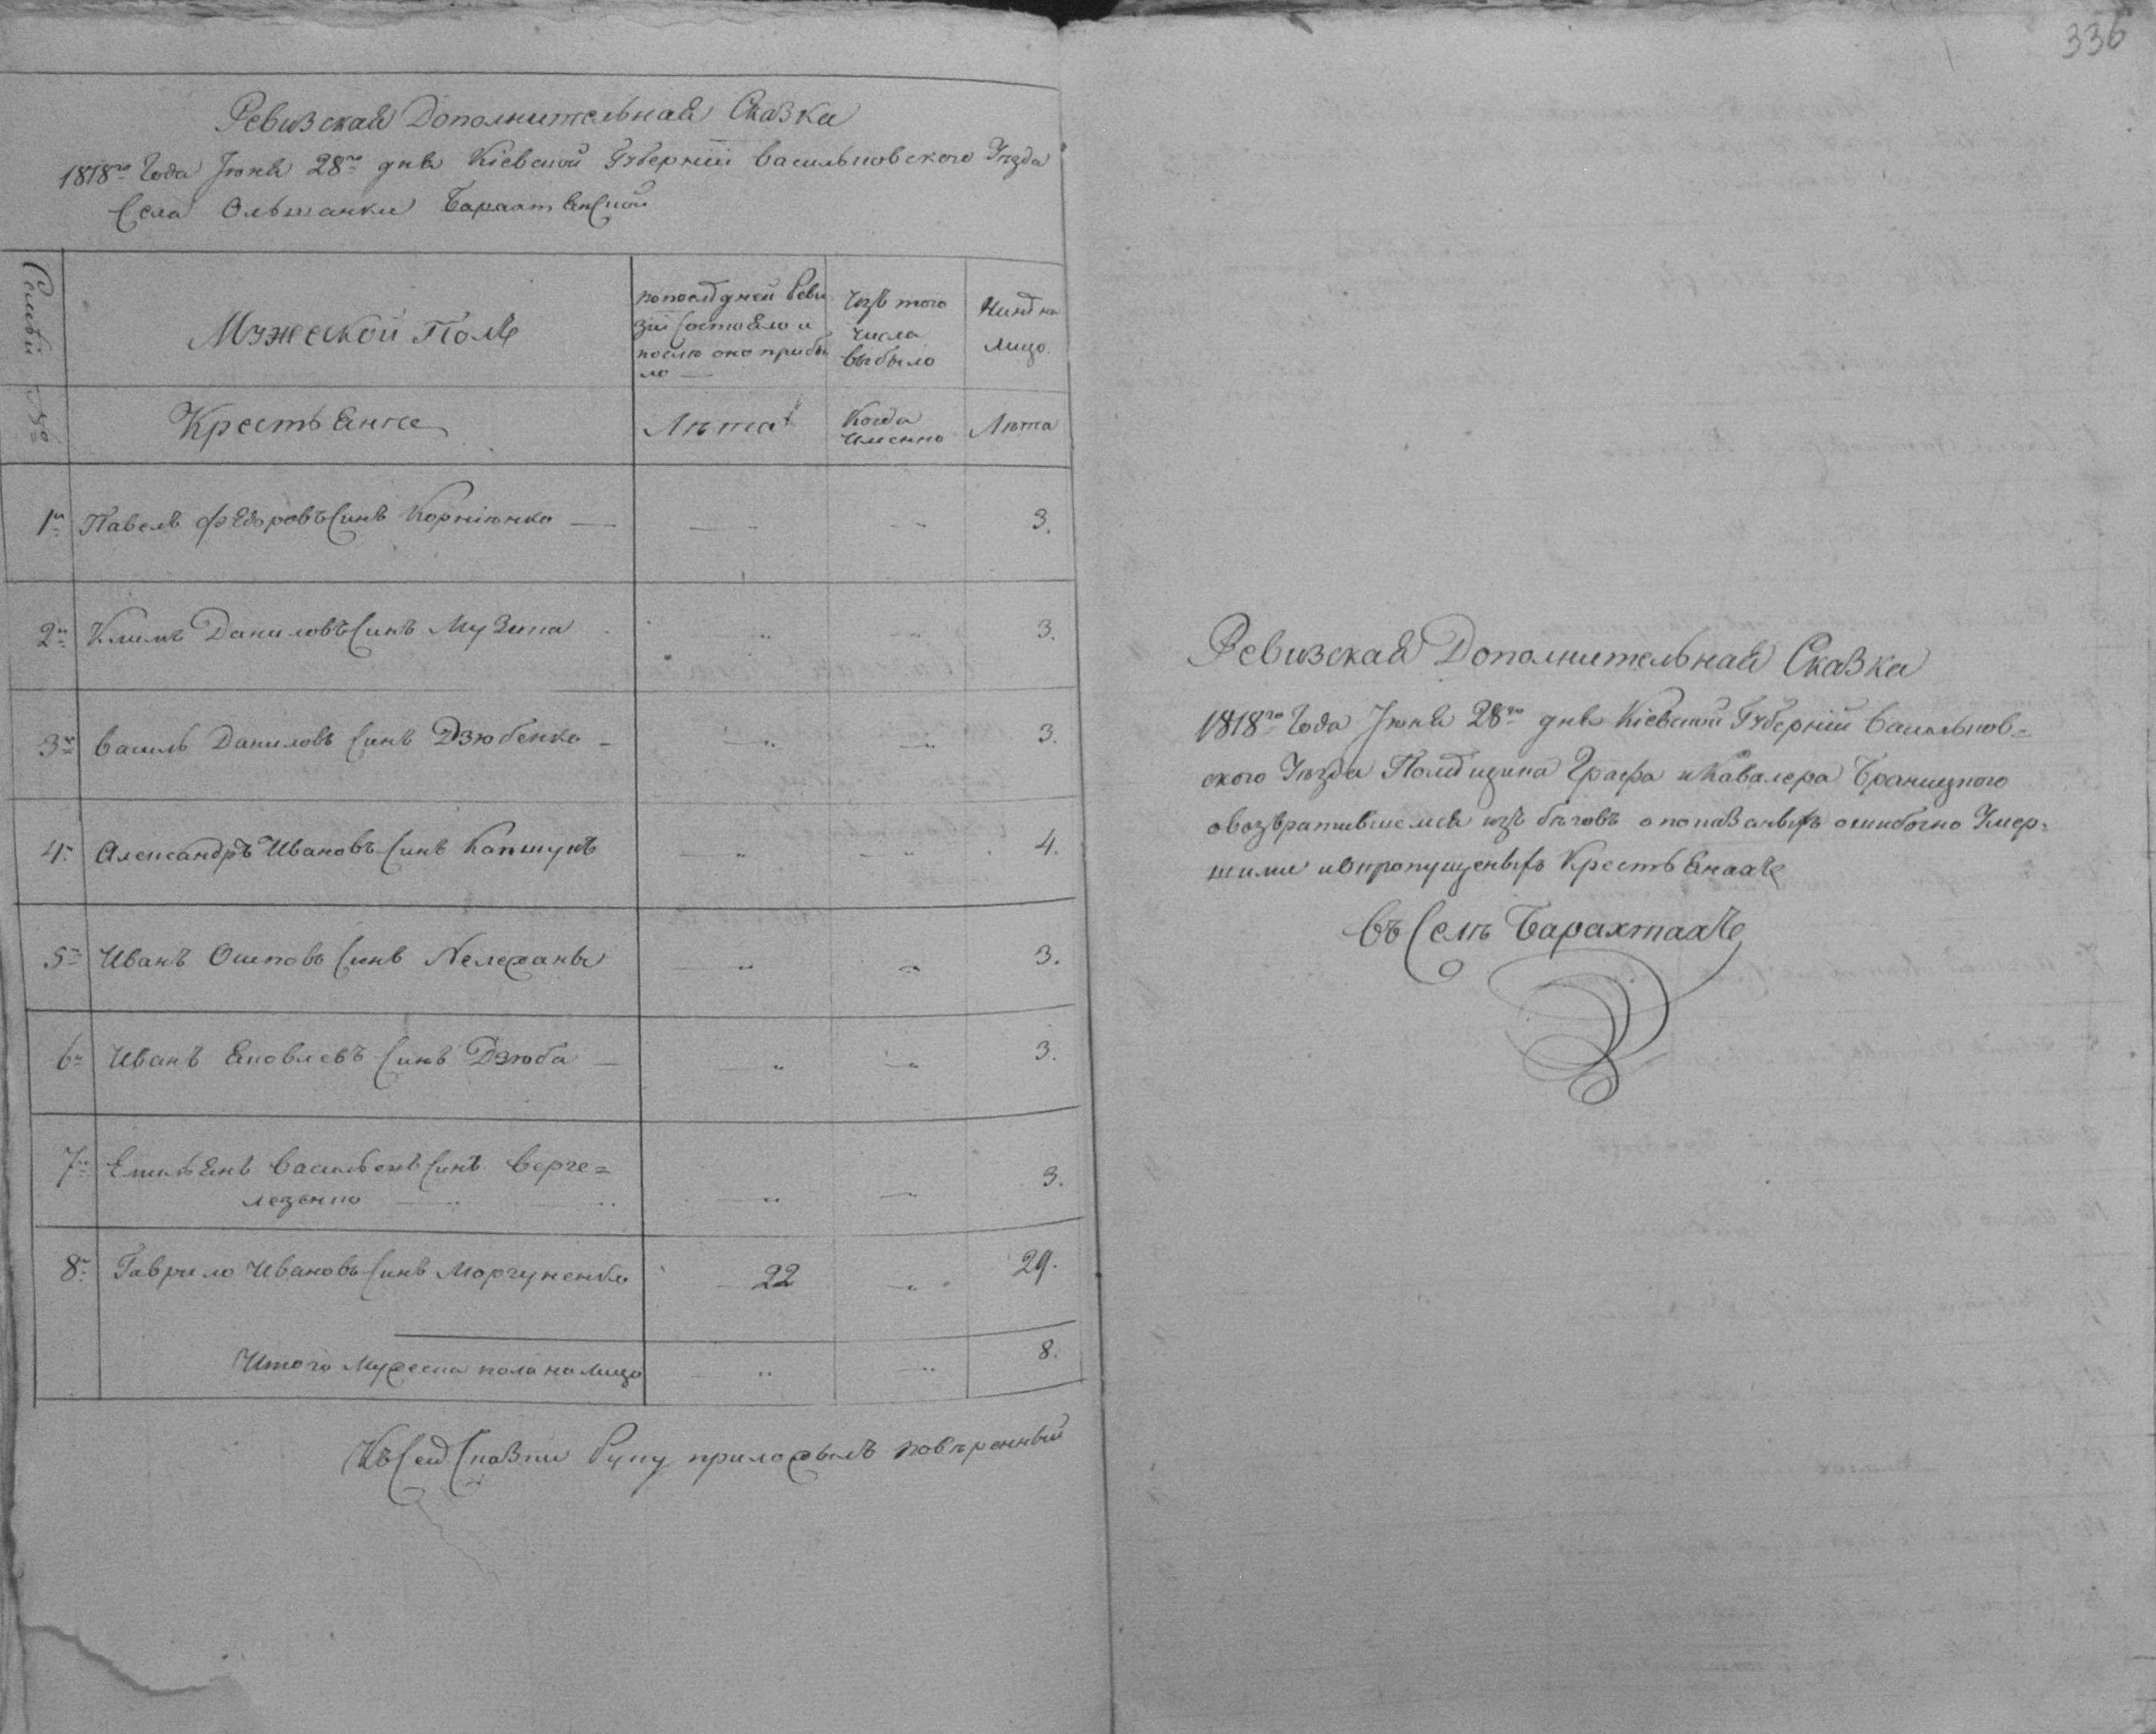 336
Ревизская Дополнительная Сказка
1818го Года Июня 28го дня Кіевской Губерніи васильковского Уѣзда
Села Ольшанки Барахтянской
Семьи №
Мужеской Полъ
по последней Реви
зіи состояло и
послѣ оно прибы
ло —
Изъ того
числа
выбыло
Нинѣ на
лицо
Крестьянъе
Лѣта
Когда
именно
Лѣта
1й Павелъ Федоровъ синъ Корніенко — 3.
2й Климъ Даниловъ синъ Музика 3.
3й Василь Даниловъ синъ Дзюбенко — 3.
4й Александръ Ивановъ синъ Капшукъ 4.
5й Иванъ Осиповъ синъ 3.
6й Иванъ Яковлевъ синъ Дзюба — 3.
7й Емильянъ Васильевъ синъ Верге=
лезенко 3.
8й Гаврило Ивановъ синъ Моргуненко 22 29.
Итого Мужеска пола на лицо 8.
Къ сей сказки Руку приложилъ повѣренный
Ревизская Дополнительная Сказка
1818го Года Июня 28го дня Кіевской Губерніи Васильков=
ского Уѣзда Помѣщика Графа и Кавалера Браницкого
о возвратившемся изъ бѣговъ о показаныхъ ошибочно Умер=
шими и о пропущеныхъ Крестьянахъ
въ Селѣ Барахтахъ